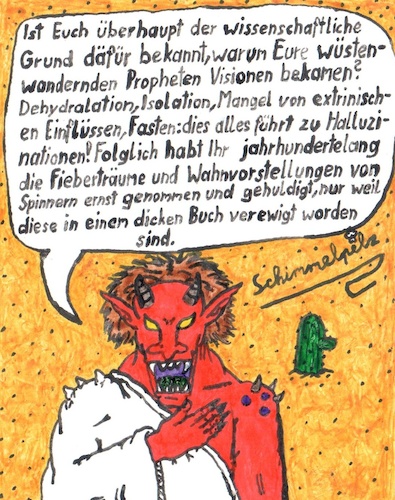 Ist Euch überhaupt der wissenschaftliche
Grund däfür bekannt, warum Eure wüsten-
wandernden Propheten Visionen bekamen?
Dehydralation, Isolation, Mangel von extrinisch-
en Einflüssen, Fasten: dies alles führt zu Halluzi-
nationen! Folglich habt Ihr jahrhundertelang
die Fieberträume und Wahnvorstellungen von
Spinnern ernst genommen und gehuldigt, nur weil
diese in einem dicken Buch verewigt worden
sind.
Schimmelpelz